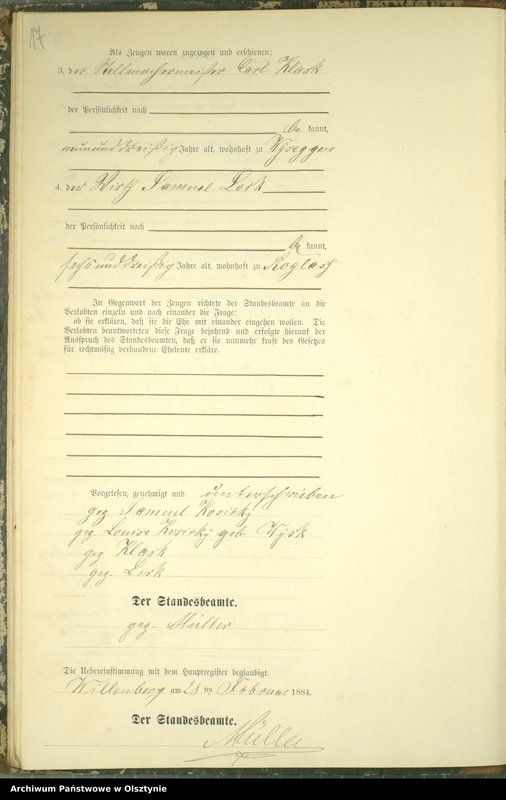 17
Als Zeugen waren zugezogen und erschienen:
3. der Stellmachermeister Carl Klask
der Persönlichkeit nach
be kannt,
neununddreißig Jahre alt, wohnhaft zu
4. der Wirth Samuel Lork
der Persönlichkeit nach
be kannt,
sechsunddreißig Jahre alt, wohnhaft zu Roglass
In Gegenwart der Zeugen richtete der Standesbeamte an die
Verlobten einzeln und nach einander die Frage:
ob sie erklären, daß sie die Ehe mit einander eingehen wollen. Die
Verlobten beantworteten diese Frage bejahend und erfolgte hierauf der
Ausspruch des Standesbeamten, daß er sie nunmehr kraft des Gesetzes
für rechtmäßig verbundene Eheleute erkläre.
Vorgelesen, genehmigt und unterschrieben
gez. Samuel Kositzky
gez. Louise Kositzky geb. Wysk
gez. Klask
gez. Lork
Der Standesbeamte.
gez. Müller
Die Uebereinstimmung mit dem Hauptregister beglaubigt.
Willenberg am 28 ten Februar 1884.
Der Standesbeamte.
Müller
Archiwum Państwowe w Olsztynie